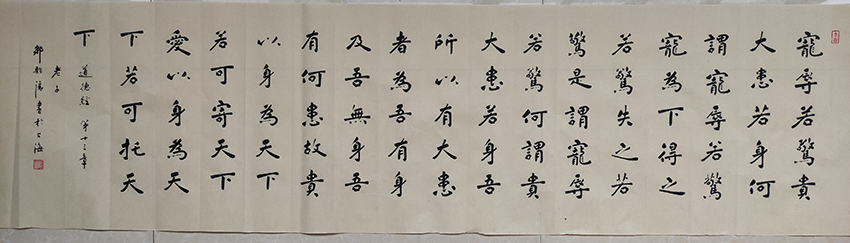 寵辱若驚貴
大患若身何
謂寵辱若驚
寵為下得之
若驚失之若
驚是謂寵辱
若驚何謂貴
大患若身吾
所以有大患
者為吾有身
及吾無身吾
有何患故貴
以身為天下
若可寄天下
愛以身為天
下若可托天
下 道德經 第十三章
老子
書於上海